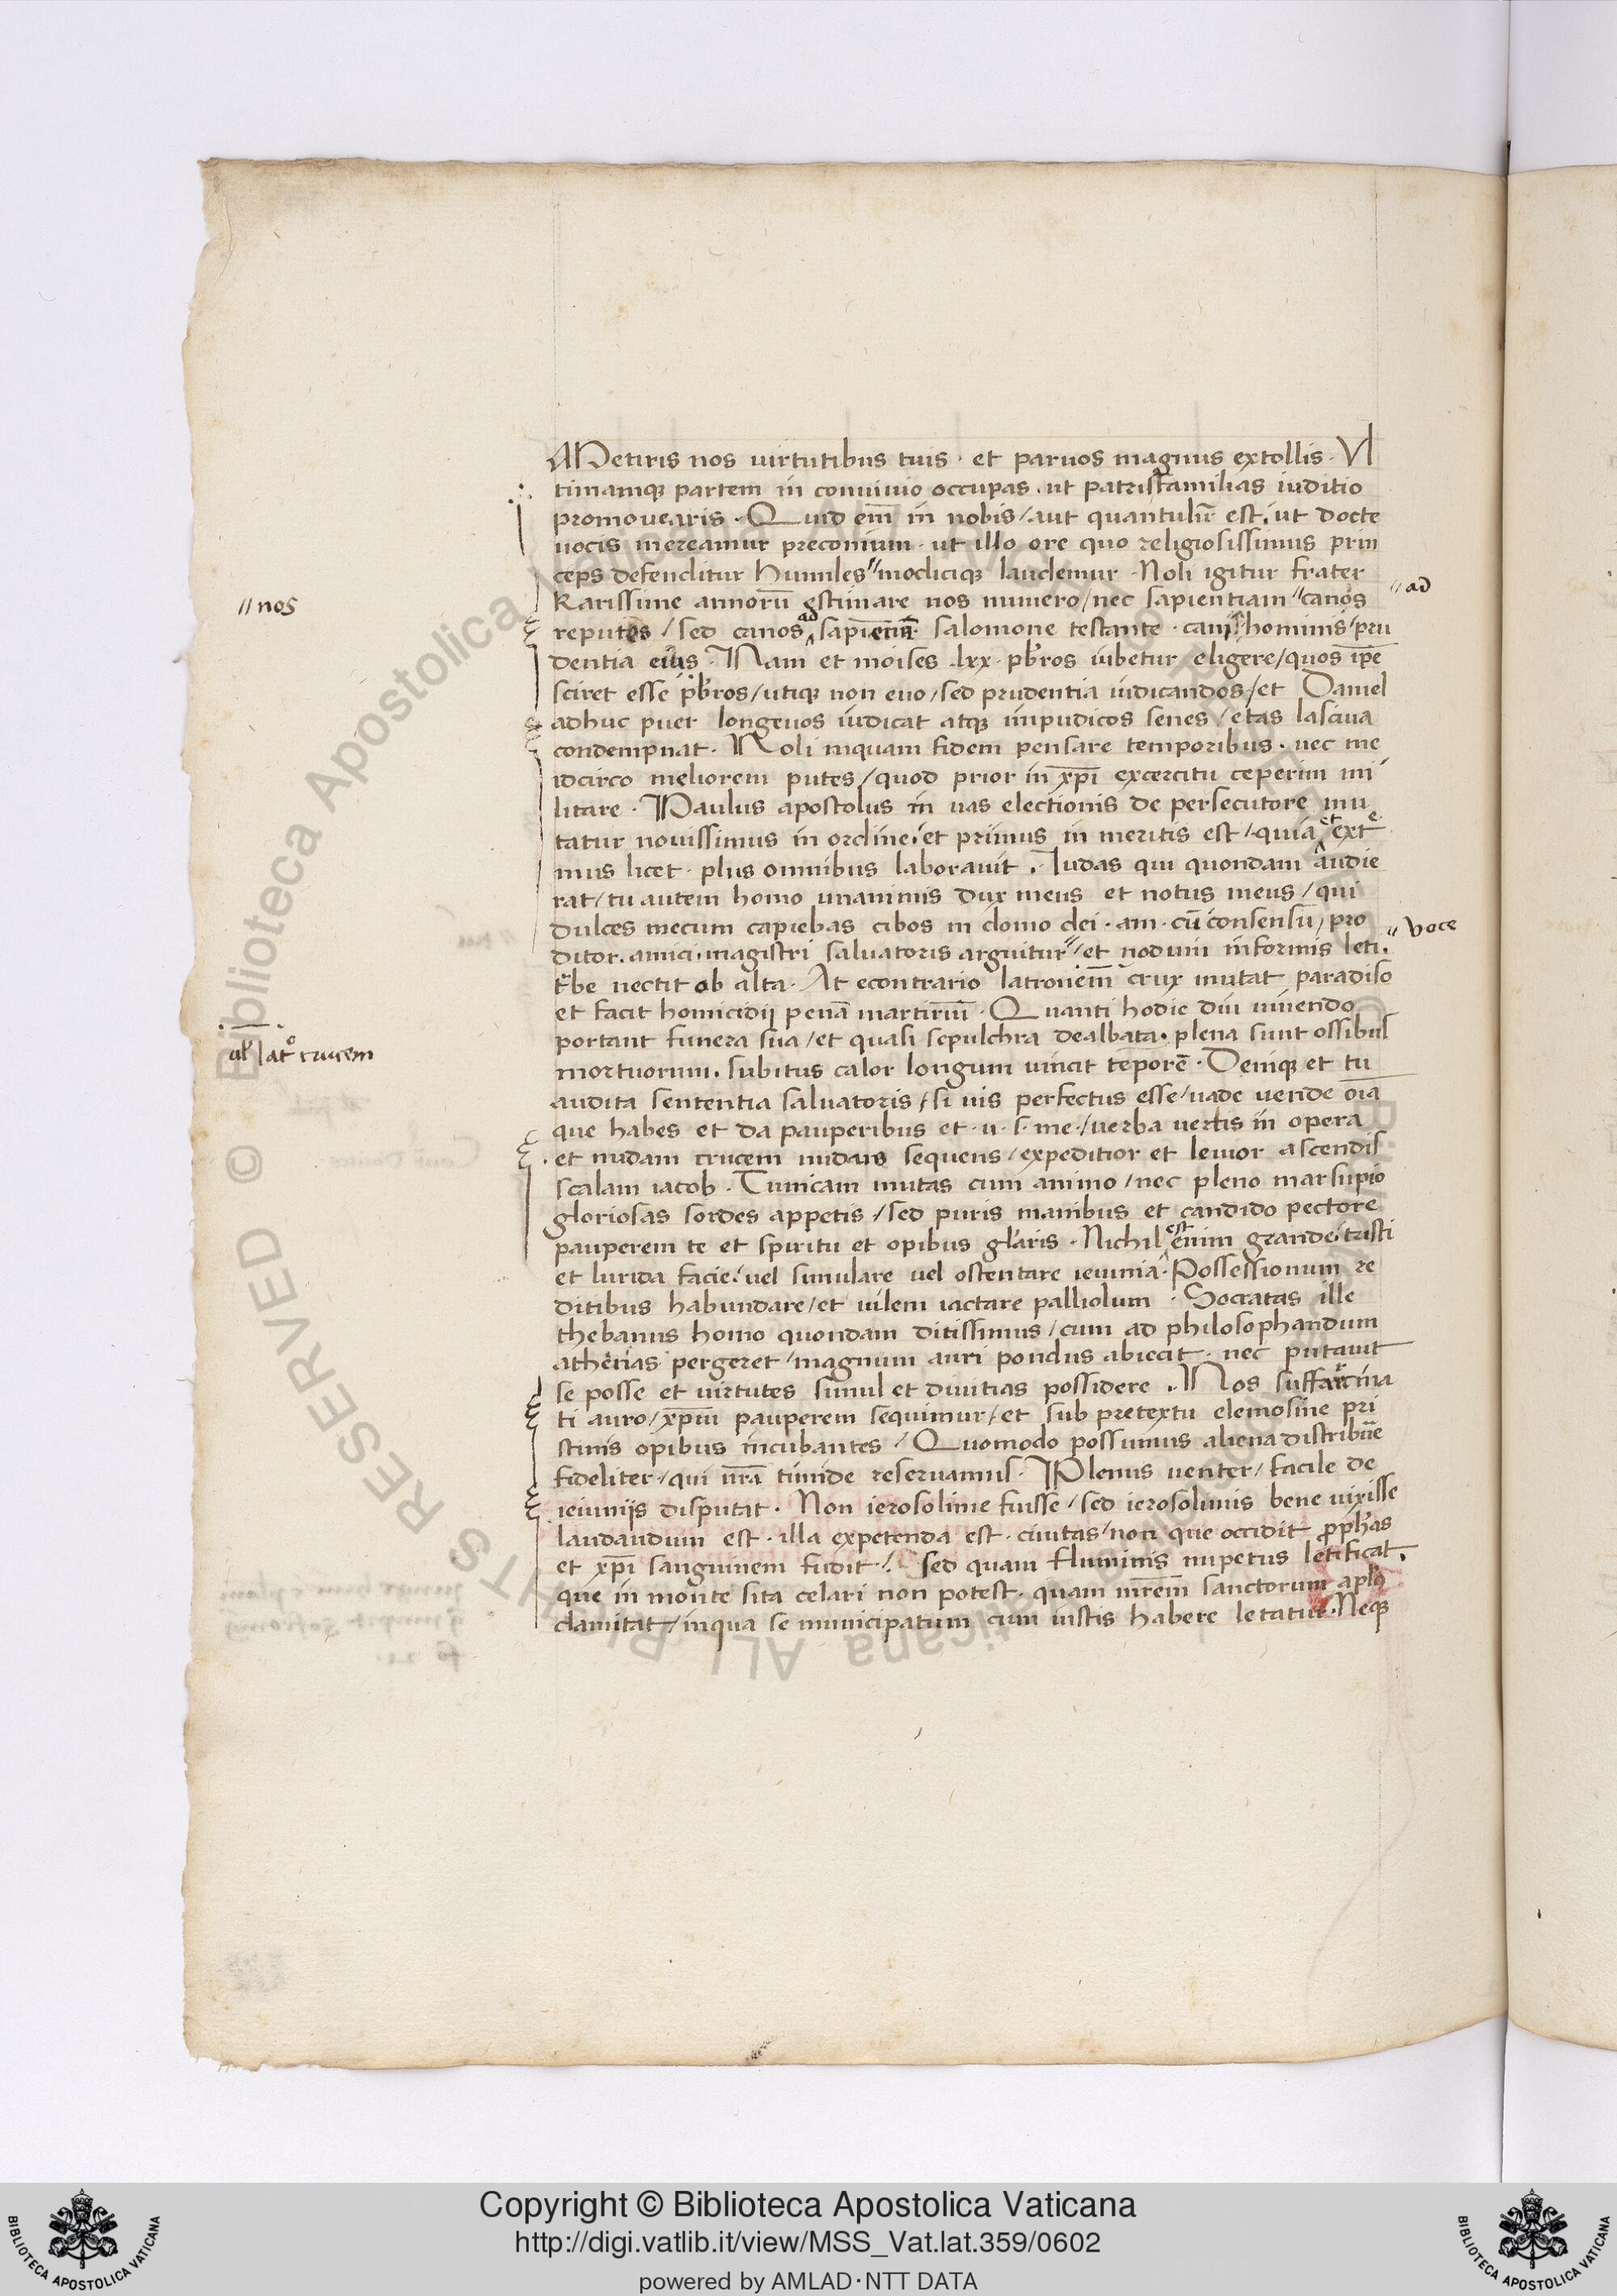 Metiris nos uirtutibus tuis · et paruos magnus extollis · Vl
timamqȝ partem in conuiuio occupas · ut patrisfamilias iuditio
promouearis · Quid eni̅ in nobis / aut quantulu̅ est · ut docte
uocis mereamur preconium · ut illo ore quo religiosissimus prin
ceps defenditur humiles // modiciqȝ laudemur · Noli igitur frater
// nos
Karissime annoru̅ estimare nos numero / nec sapientiam // canos
// ad
reputes / sed canos ad sapientia̅ · salomone testante · cani hominis / pru
dentia eius · Nam et moises · lxx · pb̅ros iubetur eligere / quos ip̅e
sciret esse pb̅ros / utiqȝ non euo / sed prudentia iudicandos / et Daniel
adhuc puer longeuos iudicat atqȝ impudicos senes / etas lasciua
condempnat · Noli inquam fidem pensare temporibus · nec me
idcirco meliorem putes / quod prior in xp̅i excercitu ceperim mi
litare · Paulus apostolus in uas electionis de persecutore mu
tatur nouissimus in ordine · et primus in meritis est / quia et extre
mus licet · plus omnibus laborauit · Iudas qui quondam audie
rat / tu autem homo unanimis dux meus et notus meus / qui
dulces mecum capiebas cibos in domo dei · am · cu̅ consensu / pro
// voce
ditor · amici · magistri saluatoris arguitur // et nodum informis leti ·
t̅be nectit ab alta · At econtrario latronem crux mutat paradiso
et facit homicidij pena̅ martiriu̅ · Quanti hodie diu uiuendo
portant funera sua / et quasi sepulchra dealbata · plena sunt ossibus
ul' latº crucem
mortuorum · subitus calor longum uincit tepore̅ · Deniqȝ et tu
audita sententia saluatoris / si uis perfectus esse / uade uende oi̅a
que habes et da pauperibus et · u · s · me · / uerba uertis in opera
· et nudam crucem nudus sequens / expeditior et leuior ascendis
scalam iacob · Tunicam mutas cum animo / nec pleno marsupio
gloriosas sordes appetis / sed puris manibus et candido pectore
pauperem te et spiritu et opibus gl'aris · Nichil est enim grande tristi
et lurida facie · uel simulare uel ostentare ieiunia · Possessionum re
ditibus habundare / et uilem iactare palliolum · Socratas ille
thebanus homo quondam ditissimus / cum ad philosophandum
athenas pergeret / magnum auri pondus abiecit · nec putauit
se posse et uirtutes simul et diuitias possidere · Nos suffarcina
ti auro / xp̅m pauperem sequimur / et sub pretextu elemosine pri
stinis opibus incubantes / Quomodo possumus aliena distribue̅
fideliter / qui nr̅a timide reseruamus · Plenus uenter / facile de
ieiunijs disputat · Non ierosolime fuisse / sed ierosolimis bene uixisse
laudandum est · illa expetenda est · ciuitas / non que occidit proph'as
et xp̅i sanguinem fudit · / Sed quam fluminis impetus letificat ·
que in monte sita celari non potest · quam mr̅em sanctorum apl'us
clamitat / inqua se municipatum cum iustis habere letatur · Neqȝ
Copyright © Biblioteca Apostolica Vaticana
http://digi.vatlib.it/view/MSS_Vat.lat.359/0602
powered by AMLAD·NTT DATA
BIBLIOTECA APOSTOLICA VATICANA
BIBLIOTECA APOSTOLICA VATICANA